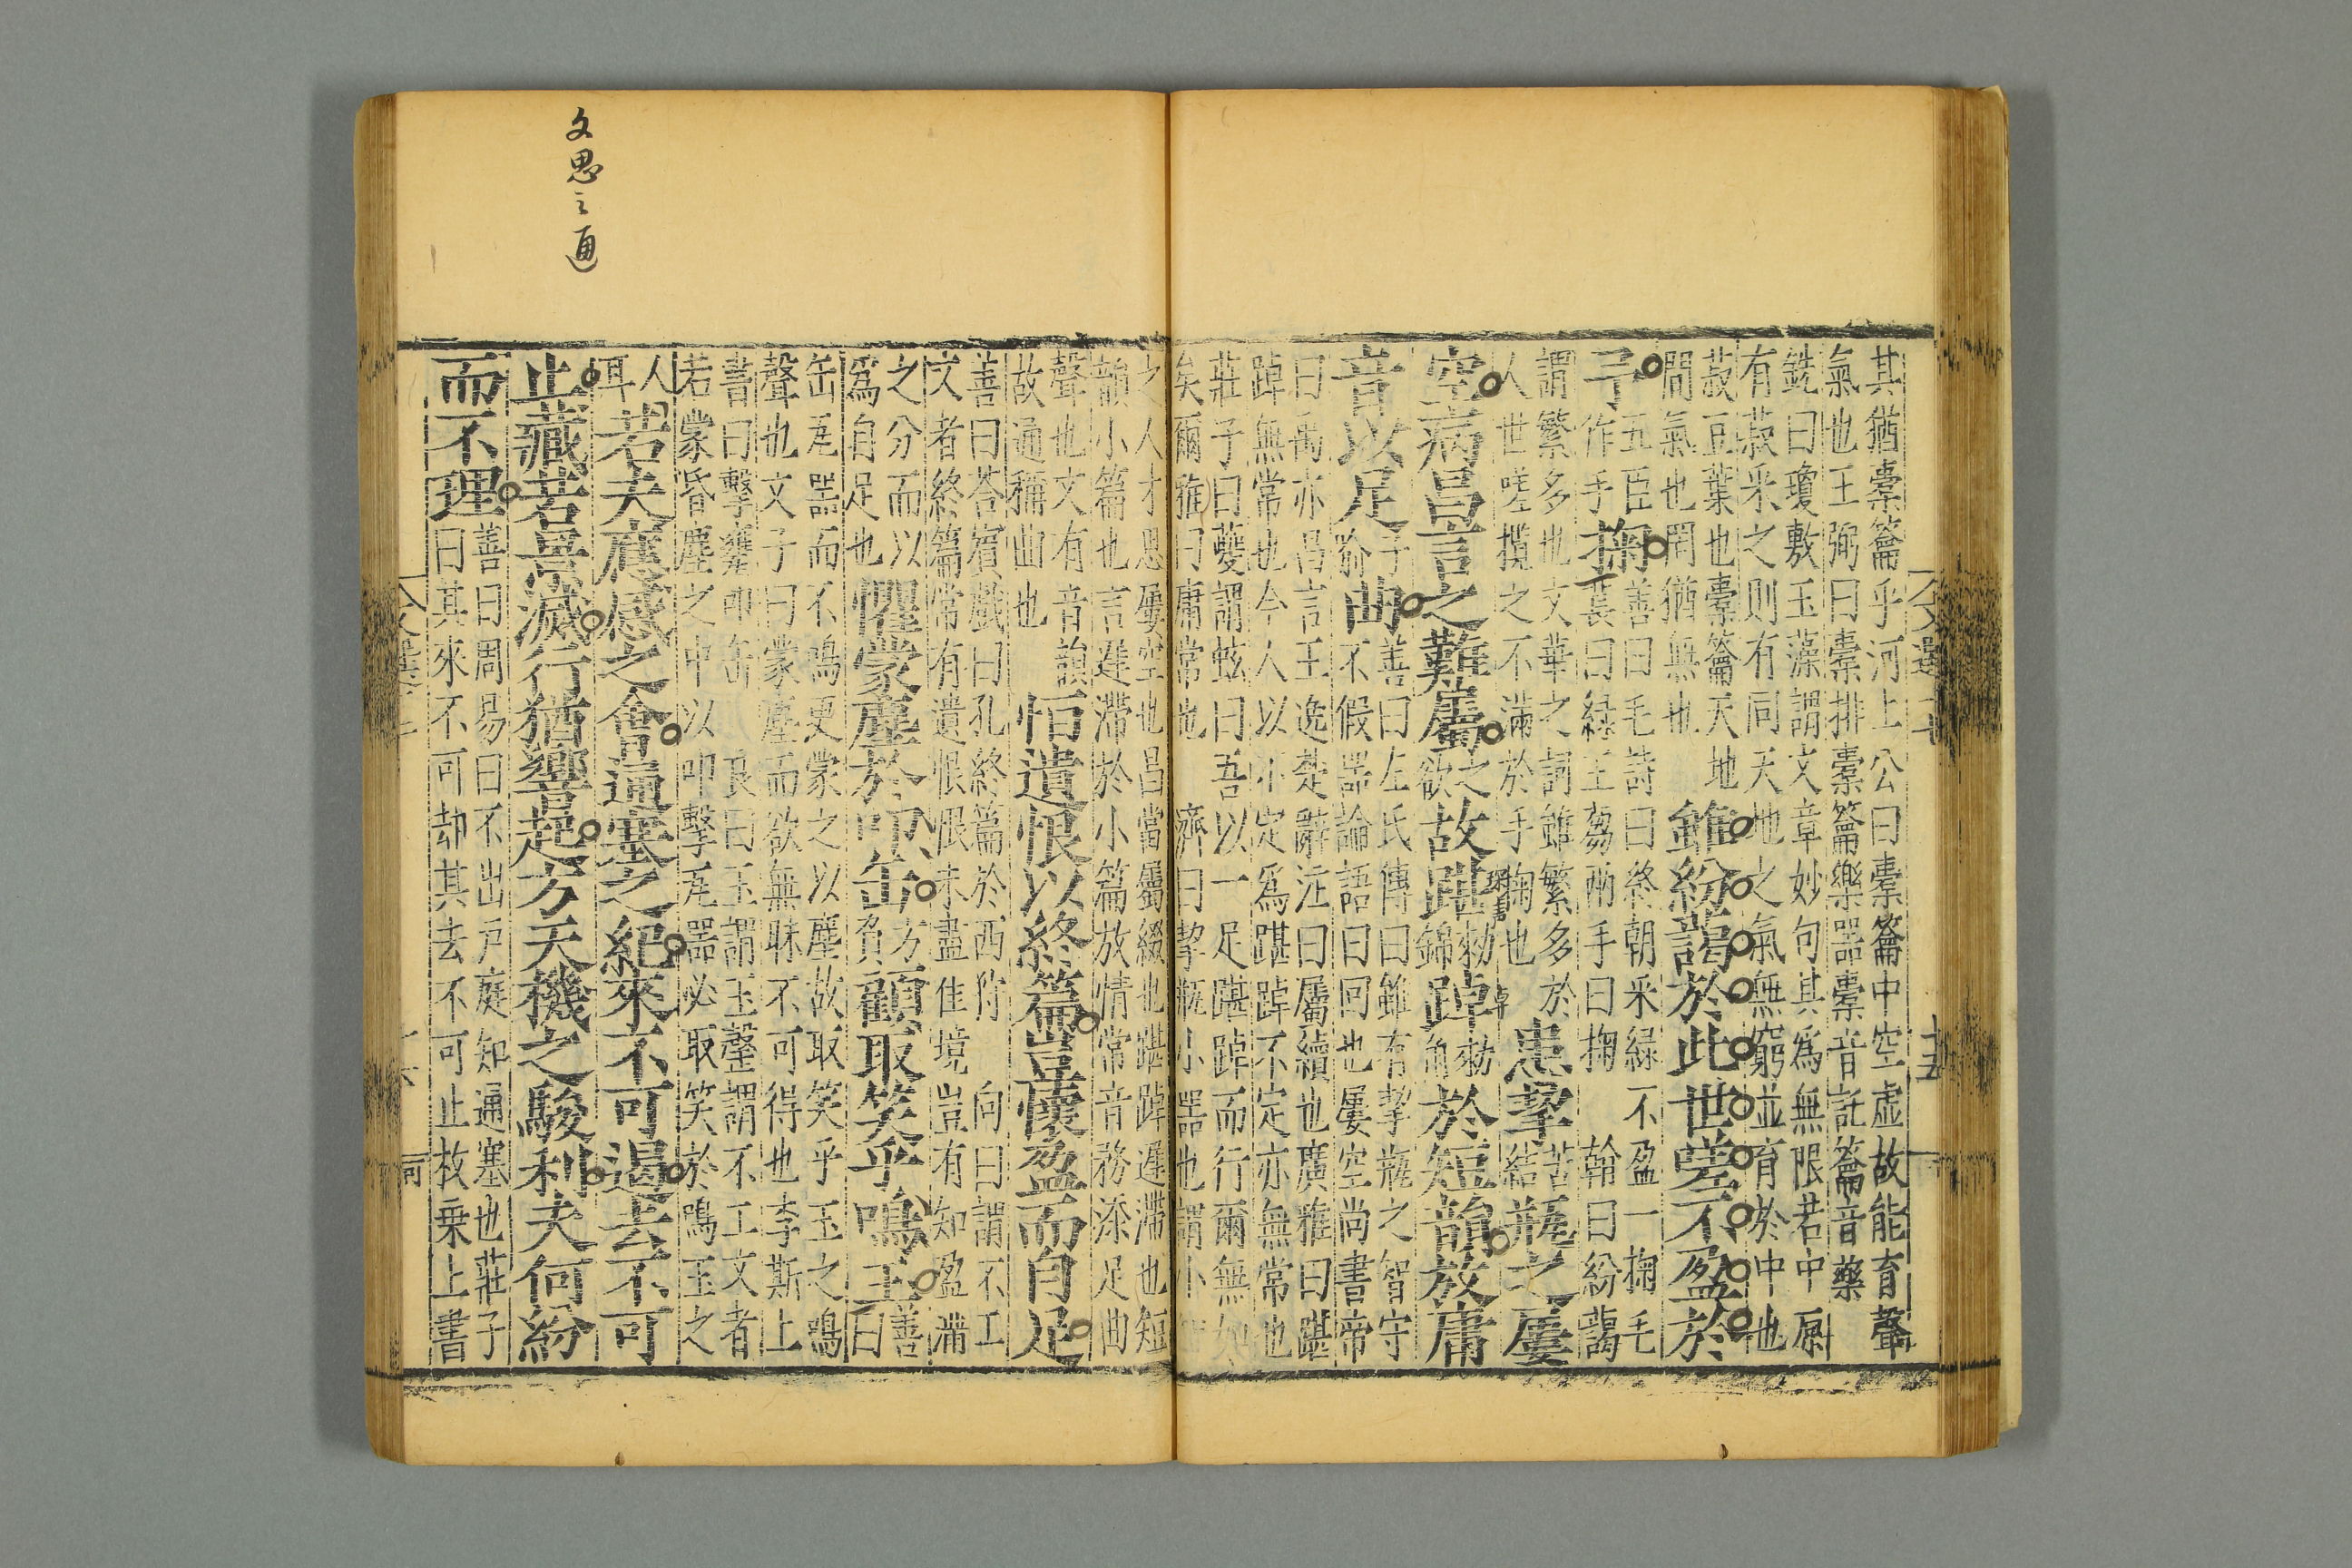 其猶橐籥乎河上公曰橐籥中空虛故能育聲
氣也王弼曰橐排橐籥樂器橐音託籥音藥
銑曰瓊敷玉藻謂文章妙句其為無限若中原
有菽采之則有同天地之氣無窮並育於中也
菽豆葉也橐籥天地
間氣也罔猶無也
雖紛藹於此世嗟不盈於
予
五臣
作手
掬
善曰毛詩曰終朝采綠不盈一掬毛
萇曰綠王芻兩手曰掬 翰曰紛藹
謂繁多也文華之詞雖繁多於
人世嗟攬之不滿於手掬也
患挈
苦
結
瓶之屢
空病昌言之難屬
之
欲
故踸
敕
錦
踔
敕
角
於短韻放庸
音以足
子
喻
曲
善曰左氏傳曰雖有挈瓶之智守
不假器論語曰回也屢空尚書帝
曰禹亦昌言王逸楚辭注曰屬續也廣雅曰踸
踔無常也今人以不定為踸踔不定亦無常也
莊子曰夔謂蚿曰吾以一足踸踔而行爾無如
矣爾雅曰庸常也 濟曰挈瓶小器也謂小
之人才思屢空也昌當屬綴也踸踔遲滯也短
韻小篇也言遲滯於小篇放情常音務添足曲
聲也文有音韻
故通稱曲也
恒遺恨以終篇豈懷盈而自足
善曰荅賓戲曰孔終篇於西狩 向曰謂不工
文者終篇常有遺恨恨未盡佳境豈有知盈滿
之分而以
為自足也
懼蒙塵於叩缶
方
負
顧取笑乎鳴玉
善
曰
缶瓦器而不鳴更蒙之以塵故取笑乎玉之鳴
聲也文子曰蒙塵而欲無眯不可得也李斯上
書曰擊甕叩缶 良曰玉謂玉聲謂不工文者
若蒙昏塵之中以叩擊瓦器必取笑於鳴玉之
人
耳
若夫應感之會通塞之紀來不可遏去不可
止藏若景滅行猶響起方天機之駿利夫何紛
而不理
善曰周易曰不出戶庭知通塞也莊子
曰其來不可却其去不可止枚乗上書
文思之通